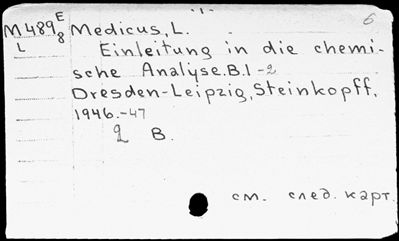 -1-
6
M489 E/8 Medicus, L.
L Einleitung in die chemi-
sche Analyse. B.1-2
Dresden-Leipzig, Steinkopff,
1946.-47
2 B.
см. след. карт.